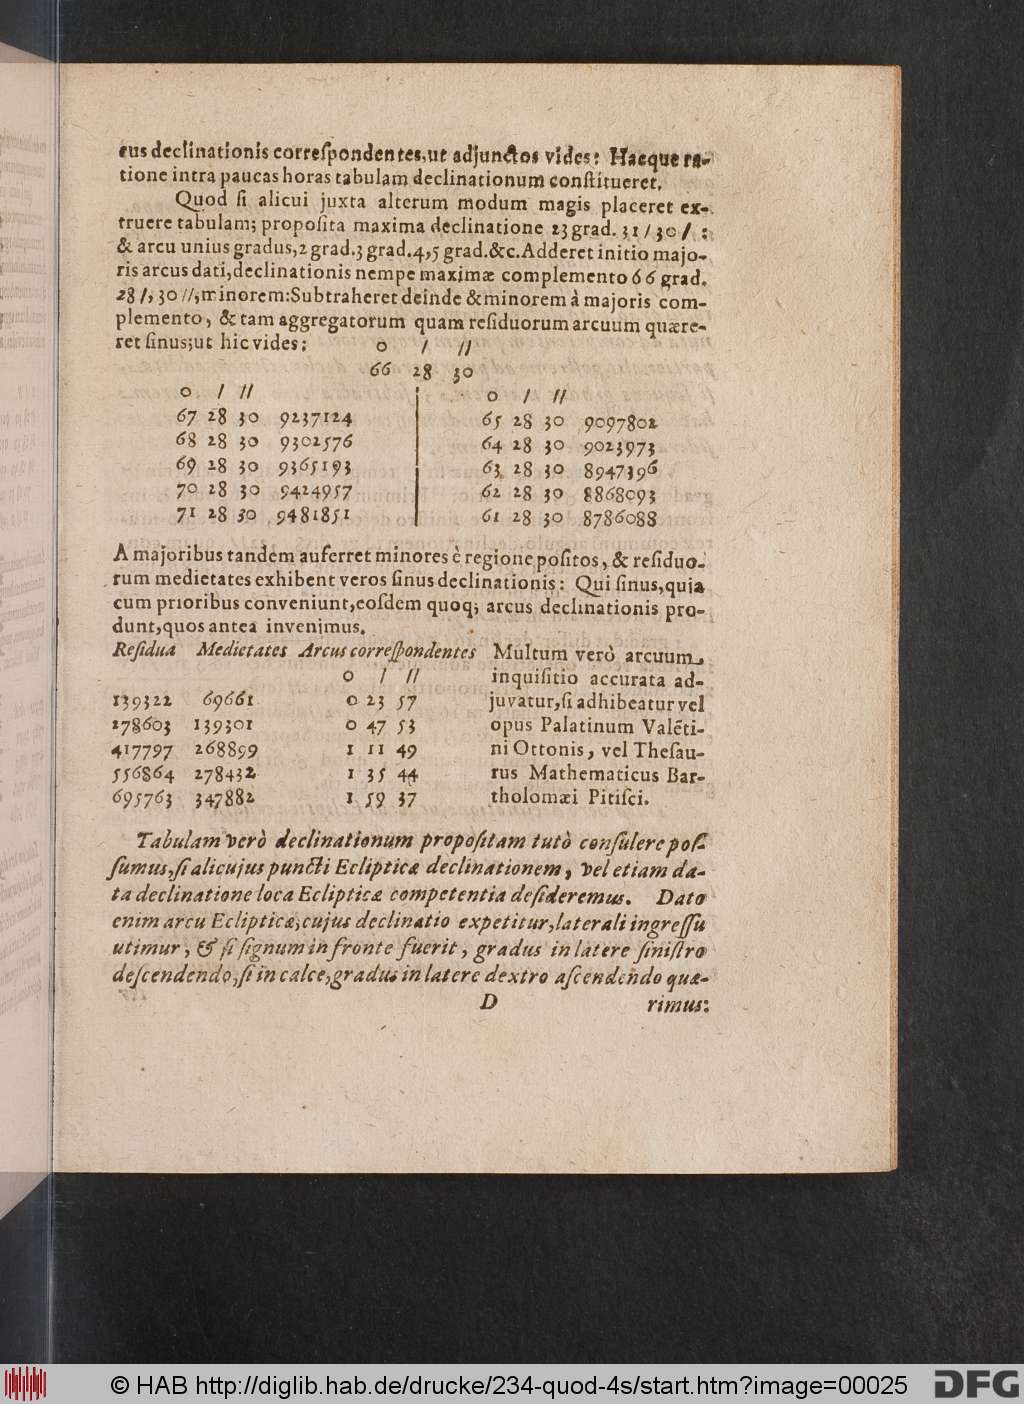 cus declinationis correſpondentes, ut adjunctos vides: Hacque ra-
tione intra paucas horas tabulam declinationum conſtitueret.
Quod ſi alicui juxta alterum modum magis placeret ex-
truere tabulam; propoſita maxima declinatione 23 grad. 31 / 30 // :
& arcu unius gradus, 2 grad. 3 grad. 4, 5 grad. &c. Adderet initio majo-
ris arcus dati, declinationis nempe maximæ complemento 66 grad.
28 /, 30 //, minorem: Subtraheret deinde & minorem à majoris com-
plemento, & tam aggregatorum quam reſiduorum arcuum quære-
ret ſinus; ut hic vides:
0 / //
66 28 30
0 / //
67 28 30 9237124
68 28 30 9302576
69 28 30 9365193
70 28 30 9424957
71 28 30 9481851
0 / //
65 28 30 9097802
64 28 30 9023973
63 28 30 8947396
62 28 30 8868093
61 28 30 8786088
A majoribus tandem auferret minores è regione poſitos, & reſiduo-
rum medietates exhibent veros ſinus declinationis: Qui ſinus, quia
cum prioribus conveniunt, eoſdem quoq; arcus declinationis pro-
dunt, quos antea invenimus.
Reſidua Medietates Arcus correſpondentes
0 / //
139322 69661 0 23 57
278603 139301 0 47 53
417797 268899 1 11 49
556864 278432 1 35 44
695763 347882 1 59 37
Multum verò arcuum
inquiſitio accurata ad-
juvatur, ſi adhibeatur vel
opus Palatinum Valẽti-
ni Ottonis, vel Theſau-
rus Mathematicus Bar-
tholomæi Pitiſci.
Tabulam verò declinationum propoſitam tutò conſulere poſ-
ſumus, ſi alicujus puncti Eclipticæ declinationem, vel etiam da-
ta declinatione loca Eclipticæ competentia deſideremus. Dato
enim arcu Eclipticæ, cujus declinatio expetitur, laterali ingreſſu
utimur, & ſi ſignum in fronte fuerit, gradus in latere ſiniſtro
deſcendendo, ſi in calce, gradus in latere dextro aſcendendo quæ-
D rimus:
© HAB http://diglib.hab.de/drucke/234-quod-4s/start.htm?image=00025
DFG